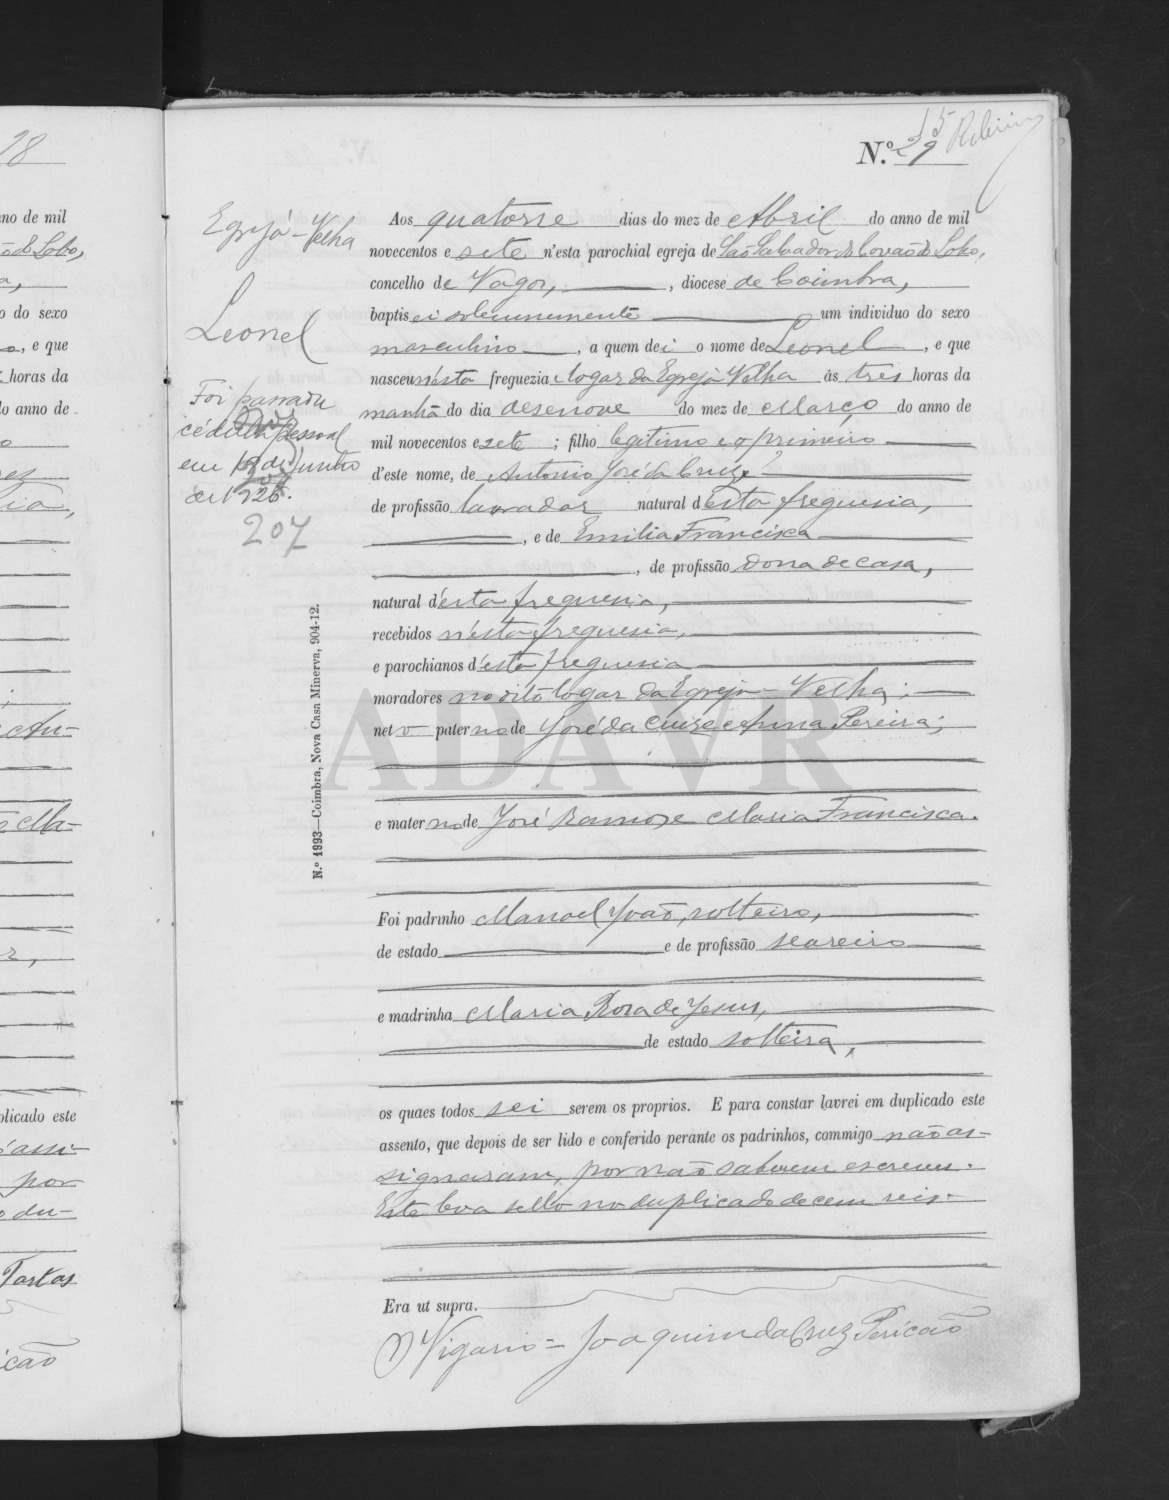 28
15
N.º 29 Ribeiro
Egrejá-Velha
Leonel
Foi passada
cédula pessoal
em de Junho
de 1925.
207
Aos quatorse dias do mez de Abril do anno de mil
novecentos e sete n'esta parochial egreja de São Salvador do Covão do Lobo,
concelho de Vagos, , diocese de Coimbra,
baptisei solemnemente um individuo do sexo
masculino , a quem dei o nome de Leonel , e que
nasceu n'ésta freguezia e logar da Egreja Velha às tres horas da
manhã do dia desenove do mez de Março do anno de
mil novecentos e sete ; filho legitimo e o primeiro
d'este nome, de Antonio José da Cruz
de profissão lavrador natural d'ésta freguesia,
, e de Emilia Francisca
, de profissão dona de casa,
natural d'ésta freguesia,
recebidos n'ésta freguesia,
e parochianos d'ésta freguesia
moradores no dito logar da Egreja-Velha;
neto paterno de José da Cruz e Anna Pereira;
e materno de José Ramos e Maria Francisca.
Foi padrinho Manoel João, solteiro,
de estado e de profissão seareiro
e madrinha Maria Rosa de Jesus,
de estado solteira,
os quaes todos sei serem os proprios. E para constar lavrei em duplicado este
assento, que depois de ser lido e conferido perante os padrinhos, commigo não as-
signaram, por não saberem escrever.
Este leva sello no duplicado de cem reis.
Era ut supra.
O Vigario = Joaquim da Cruz Pericão
N.º 1993—Coimbra, Nova Casa Minerva, 904-12.
ADAVR